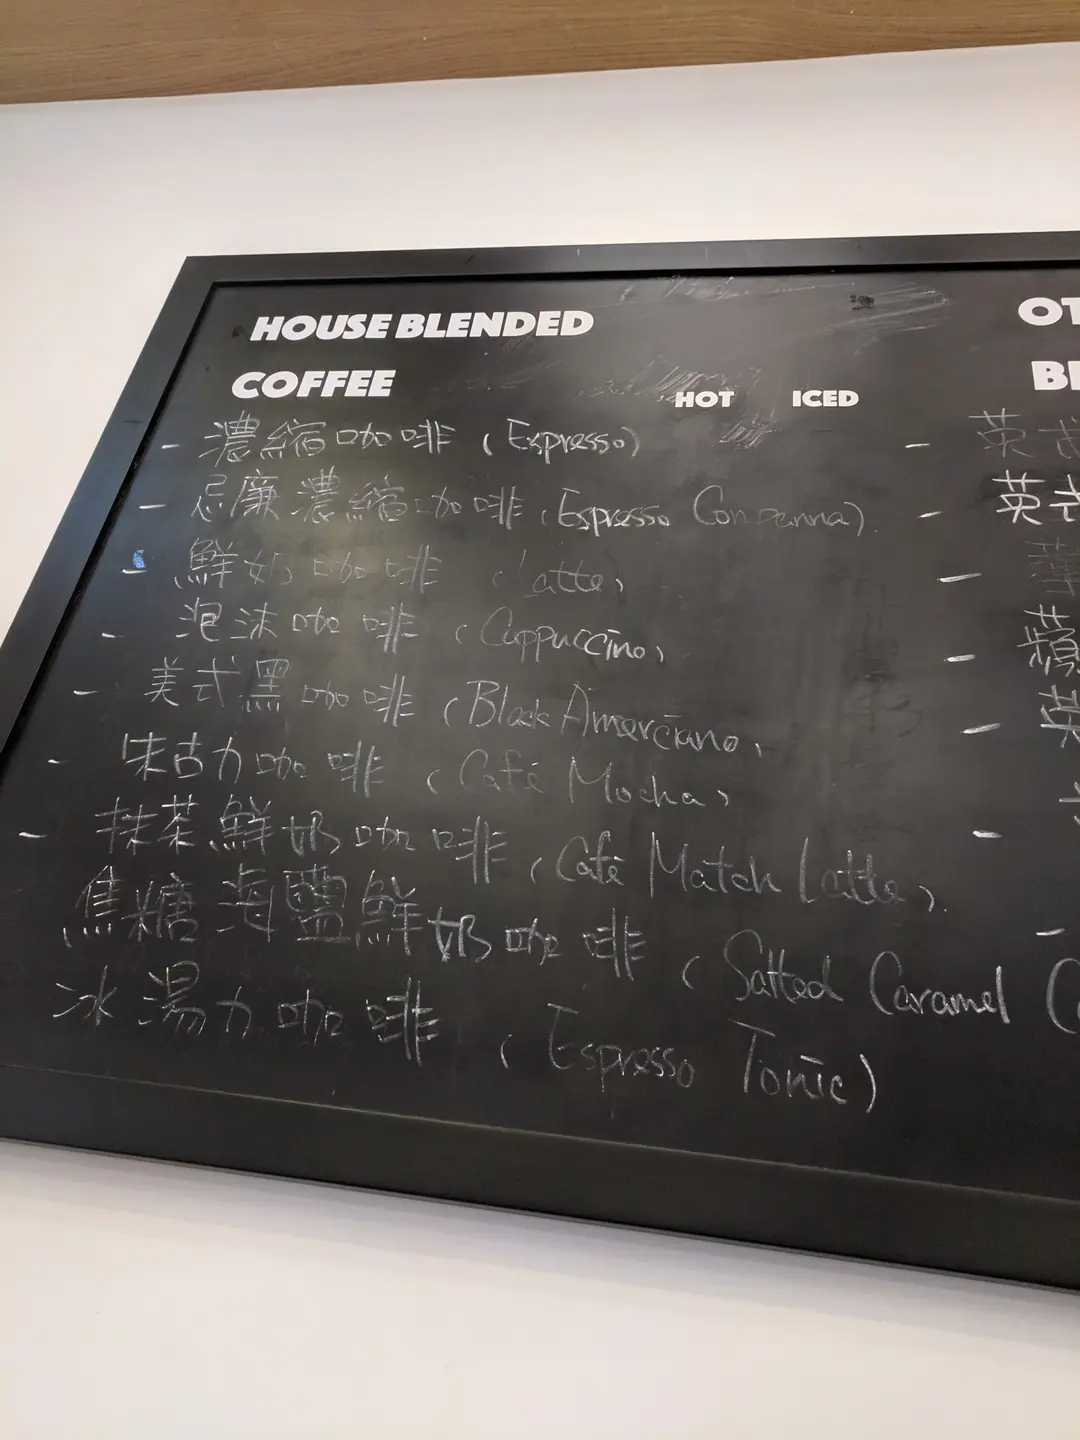 HOUSE BLENDED
COFFEE
HOT ICED
- 濃縮咖啡 (Espresso)
- 忌廉濃縮咖啡 (Espresso Conpanna)
- 鮮奶咖啡 (Latte)
- 泡沫咖啡 (Cappuccino)
- 美式黑咖啡 (Black Amerciano)
- 朱古力咖啡 (Café Mocha)
- 抹茶鮮奶咖啡 (Café Match Latte)
焦糖海鹽鮮奶咖啡 (Salted Caramel
冰湯力咖啡 (Espresso Tonic)
OT
BE
- 英式
- 英式